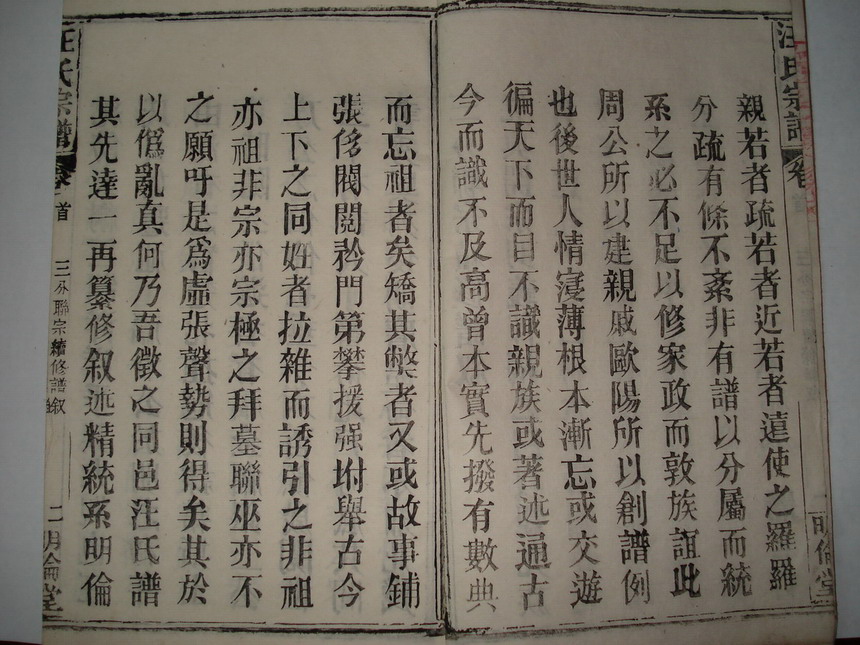 汪氏宗譜
卷
明倫堂
親若者疏若者近若者遠使之羅羅
分疏有條不紊非有譜以分屬而統
系之必不足以修家政而敦族誼此
周公所以建親戚歐陽所以創譜例
也後世人情寖薄根本漸忘或交遊
徧天下而目不識親族或著述通古
今而識不及高曾本實先撥有數典
而忘祖者矣矯其弊者又或故事鋪
張侈閥閱矜門第攀援强坿舉古今
上下之同姓者拉雜而誘引之非祖
亦祖非宗亦宗極之拜墓聯巫亦不
之願吁是爲虛張聲勢則得矣其於
以僞亂真何乃吾徵之同邑汪氏譜
其先達一再纂修叙述精統系明倫
汪氏宗譜
卷首
三分聯宗續修譜叙
二
明倫堂